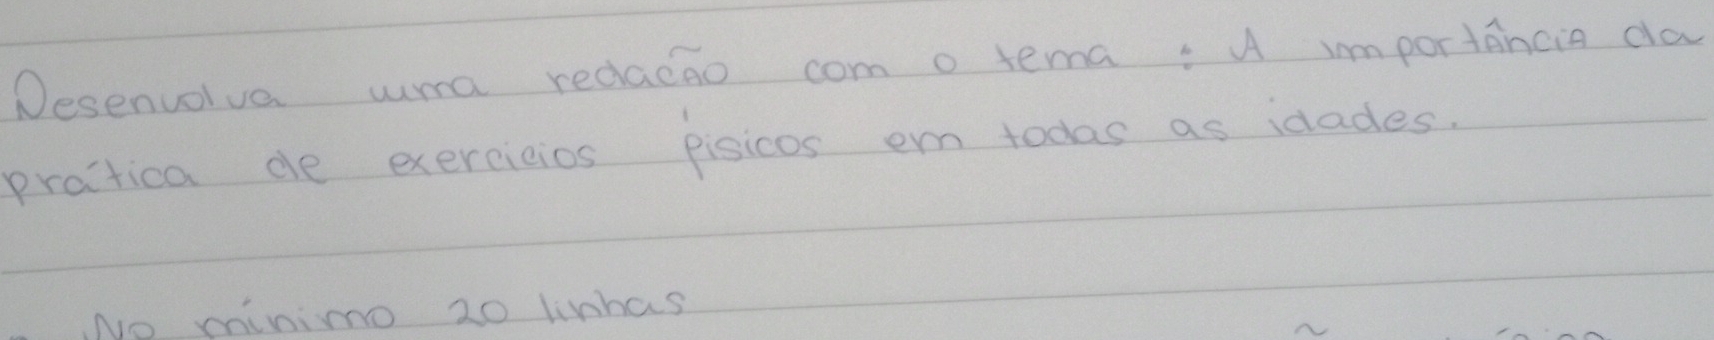 Desenvolva uma redacão com o tema : A importância da
prática de exercicios físicos em todas as idades.
- No mínimo 20 linhas